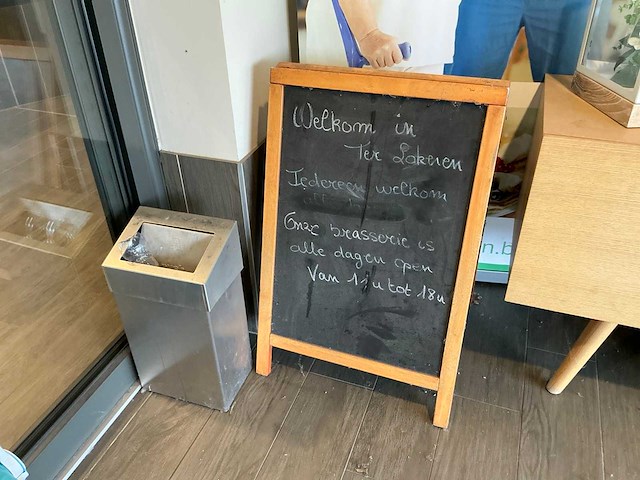 Welkom in
Ter Lokeren
Iedereen welkom
Onze brasserie is
alle dagen open
Van 11u tot 18u
n.b